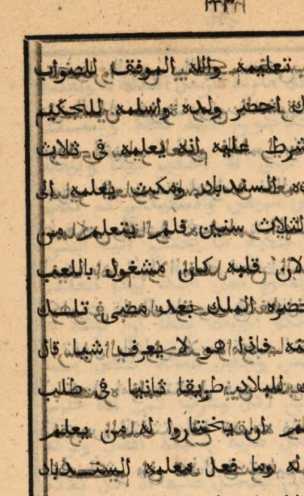 تعليمه والله الموفق للصواب
احضر ولده واسلمه للحكيم
شرط عليه انه يعلمه في ثلاث
السندباد ومكث يعلمه الى
الثلاث سنين فلم يتعلم من
لان قلبه كان مشغول باللعب
احضره الملك بعد مضى تلك
فاذا هو لا يعرف شيا قال
للبلاد طريقا ثانيا في طلب
ان يختاروا له من يعلم
له وما فعل معلمه السندباد